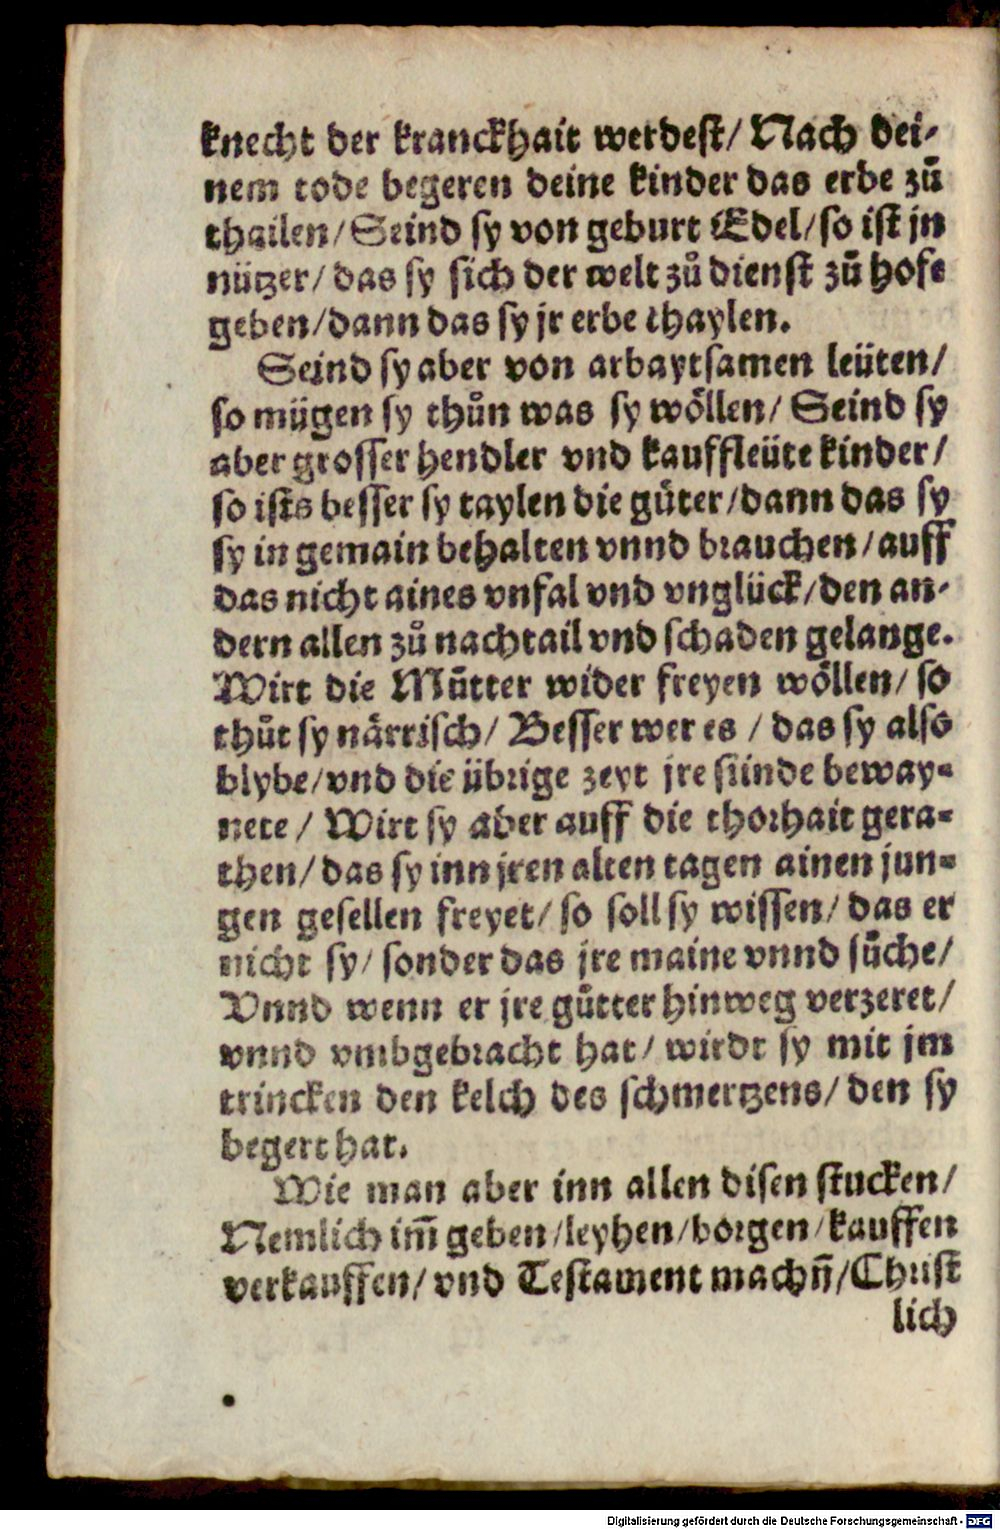 knecht der kranckhait werdest/ Nach dei-
nem tode begeren deine kinder das erbe zů
thailen/ Seind sy von geburt Edel/ so ist jn
nützer/ das sy sich der welt zů dienst zů hofe
geben/ dann das sy jr erbe thaylen.
Seind sy aber von arbaytsamen leüten/
so mügen sy thůn was sy wöllen/ Seind sy
aber grosser hendler vnd kauffleüte kinder/
so ists besser sy taylen die gůter/ dann das sy
sy in gemain behalten vnnd brauchen/ auff
das nicht aines vnfal vnd vnglück/ den an-
dern allen zů nachtail vnd schaden gelange.
Wirt die Můtter wider freyen wöllen/ so
thůt sy närrisch/ Besser wer es / das sy also
blybe/ vnd die übrige zeyt jre sünde beway-
nete / Wirt sy aber auff die thorhait gera-
then/ das sy inn jren alten tagen ainen jun-
gen gesellen freyet/ so soll sy wissen/ das er
nicht sy/ sonder das jre maine vnnd sůche/
Vnnd wenn er jre gůtter hinweg verzeret/
vnnd vmbgebracht hat/ wirdt sy mit jm
trincken den kelch des schmertzens/ den sy
begert hat.
Wie man aber inn allen disen stucken/
Nemlich im̃ geben/ leyhen/ borgen/ kauffen
verkauffen/ vnd Testament machñ/ Christ
lich
Digitalisierung gefördert durch die Deutsche Forschungsgemeinschaft - DFG